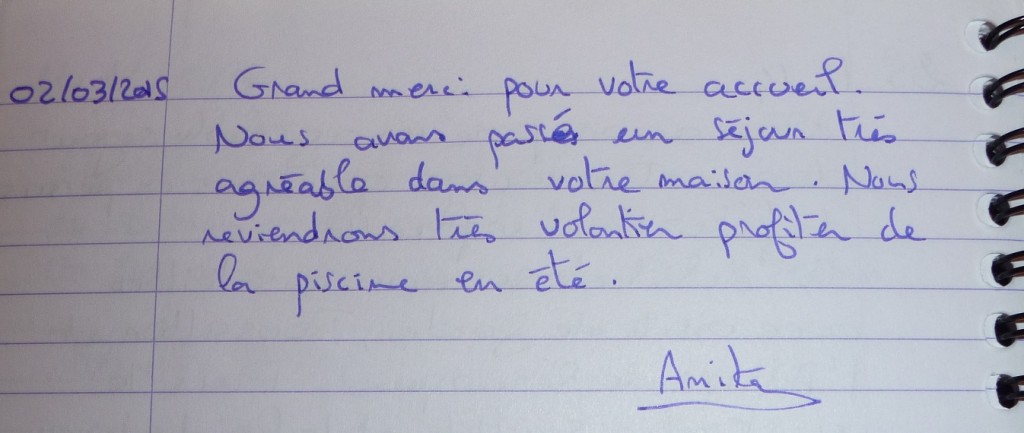 02/03/2015 Grand merci pour votre accueil.
Nous avons passé un séjour très
agréable dans votre maison. Nous
reviendrons très volontier profiter de
la piscine en été.
Anita